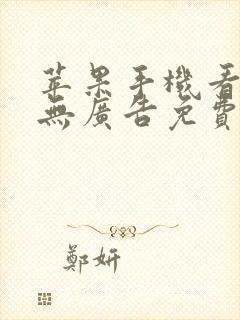 苹果手機看
無廣告免費
鄭妍